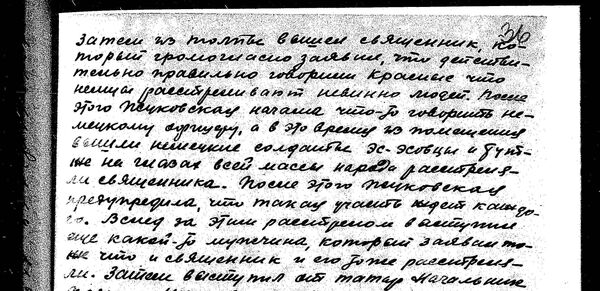 36
Затем из толпы вышел священник, ко-
торый громогласно заявил, что действи-
тельно правильно говорили красные что
немцы расстреливают невинно людей. После
этого Жуковская начала что-то говорить не-
мецкому офицеру, а в это время из помещения
вышли немецкие солдаты эс-эсовцы и тут-
же на глазах всей массы народа расстреля-
ли священника. После этого Жуковская
предупредила, что такая участь ждет каждо-
го. Вслед за этим расстрелом выступил
еще какой-то мужчина, который заявил то-
же что и священник и его тоже расстреля-
ли. Затем выступил от татар Начальник